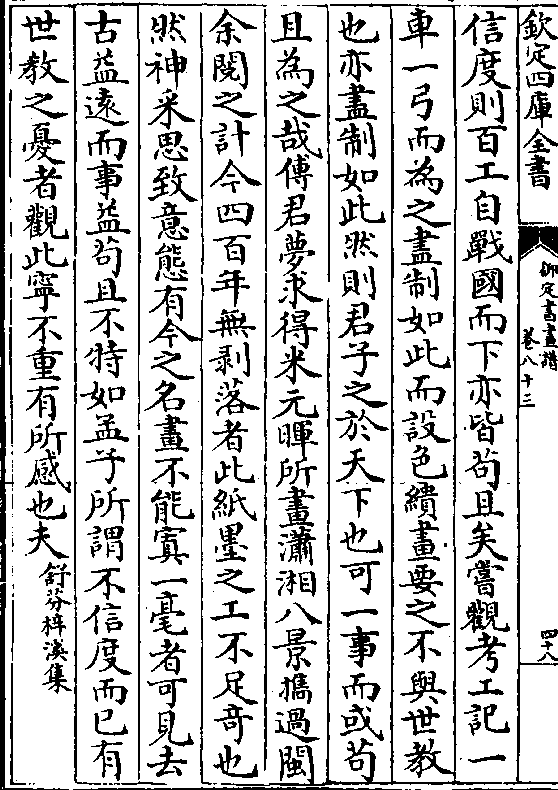 欽定四庫全書
御定書畫譜
卷八十三
四十八
信度則百工自戰國而下亦皆苟且矣嘗觀考工記一
車一弓而為之盡制如此而設色繢畫要之不與世教
也亦盡制如此然則君子之於天下也可一事而或苟
且為之哉傅君夢求得米元暉所畫瀟湘八景擕過閩
余閱之計今四百年無剥落者此紙墨之工不足竒也
然神采思致意態有今之名畫不能寘一毫者可見去
古益遠而事益苟且不特如孟子所謂不信度而已有
世教之憂者觀此寧不重有所感也夫舒芬梓溪集